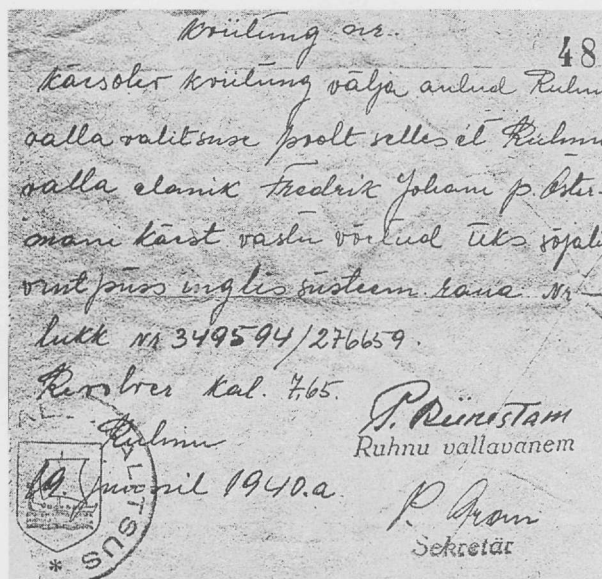 Kviitung nr.
48
Käesolev kviitung välja antud Ruhnu
valla valitsuse poolt selles et Ruhnu
valla elanik Fredrik Johani p. Öster-
mani käest vastu võetud üks sõjali
vint püss inglis süsteem raua Nr —
lukk nr 349594/276659.
Revolver kal. 7.65.
Ruhnu
19. juunil 1940.a.
Ruhnu vallavanem
Sekretär
ALITSUS *